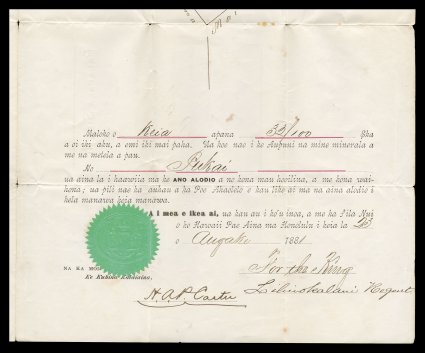 Maloko o Keia apana 33/100 Eka
a oi iki aku, a emi iki mai paha. Ua koe nae i ke Aupuni na mine minerala a
me na metela a pau.
No Pukai
ua aina la i haawiia ma ke ANO ALODIO a no kona mau hooilina, a me kona waiho-
kona; ua pili nae ka auhau a ka Poe Ahaolelo e kau like ai ma na aina alodio i
kela manawa keia manawa.
A i mea e ikea ai, ua kau au i ko'u inoa, a me ka Sila Nui
o ko Hawaii Pae Aina ma Honolulu i keia la 23
o Augake 1881
For the King
NA KA MOI
Ke Kuhina Kalaiaina,
Liliuokalani Regent
H.A.P. Carter